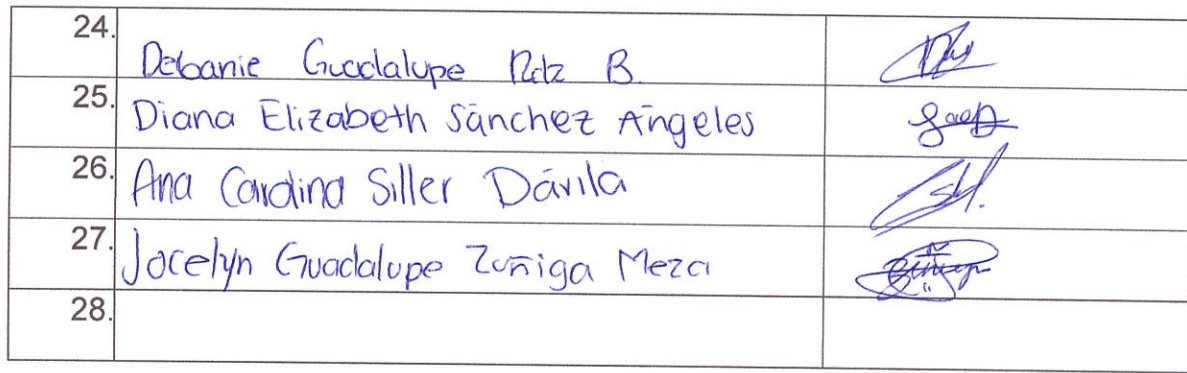 24. Debanie Guadalupe Rdz B.
25. Diana Elizabeth Sánchez Ángeles
26. Ana Carolina Siller Dávila
27. Jocelyn Guadalupe Zuñiga Meza
28.